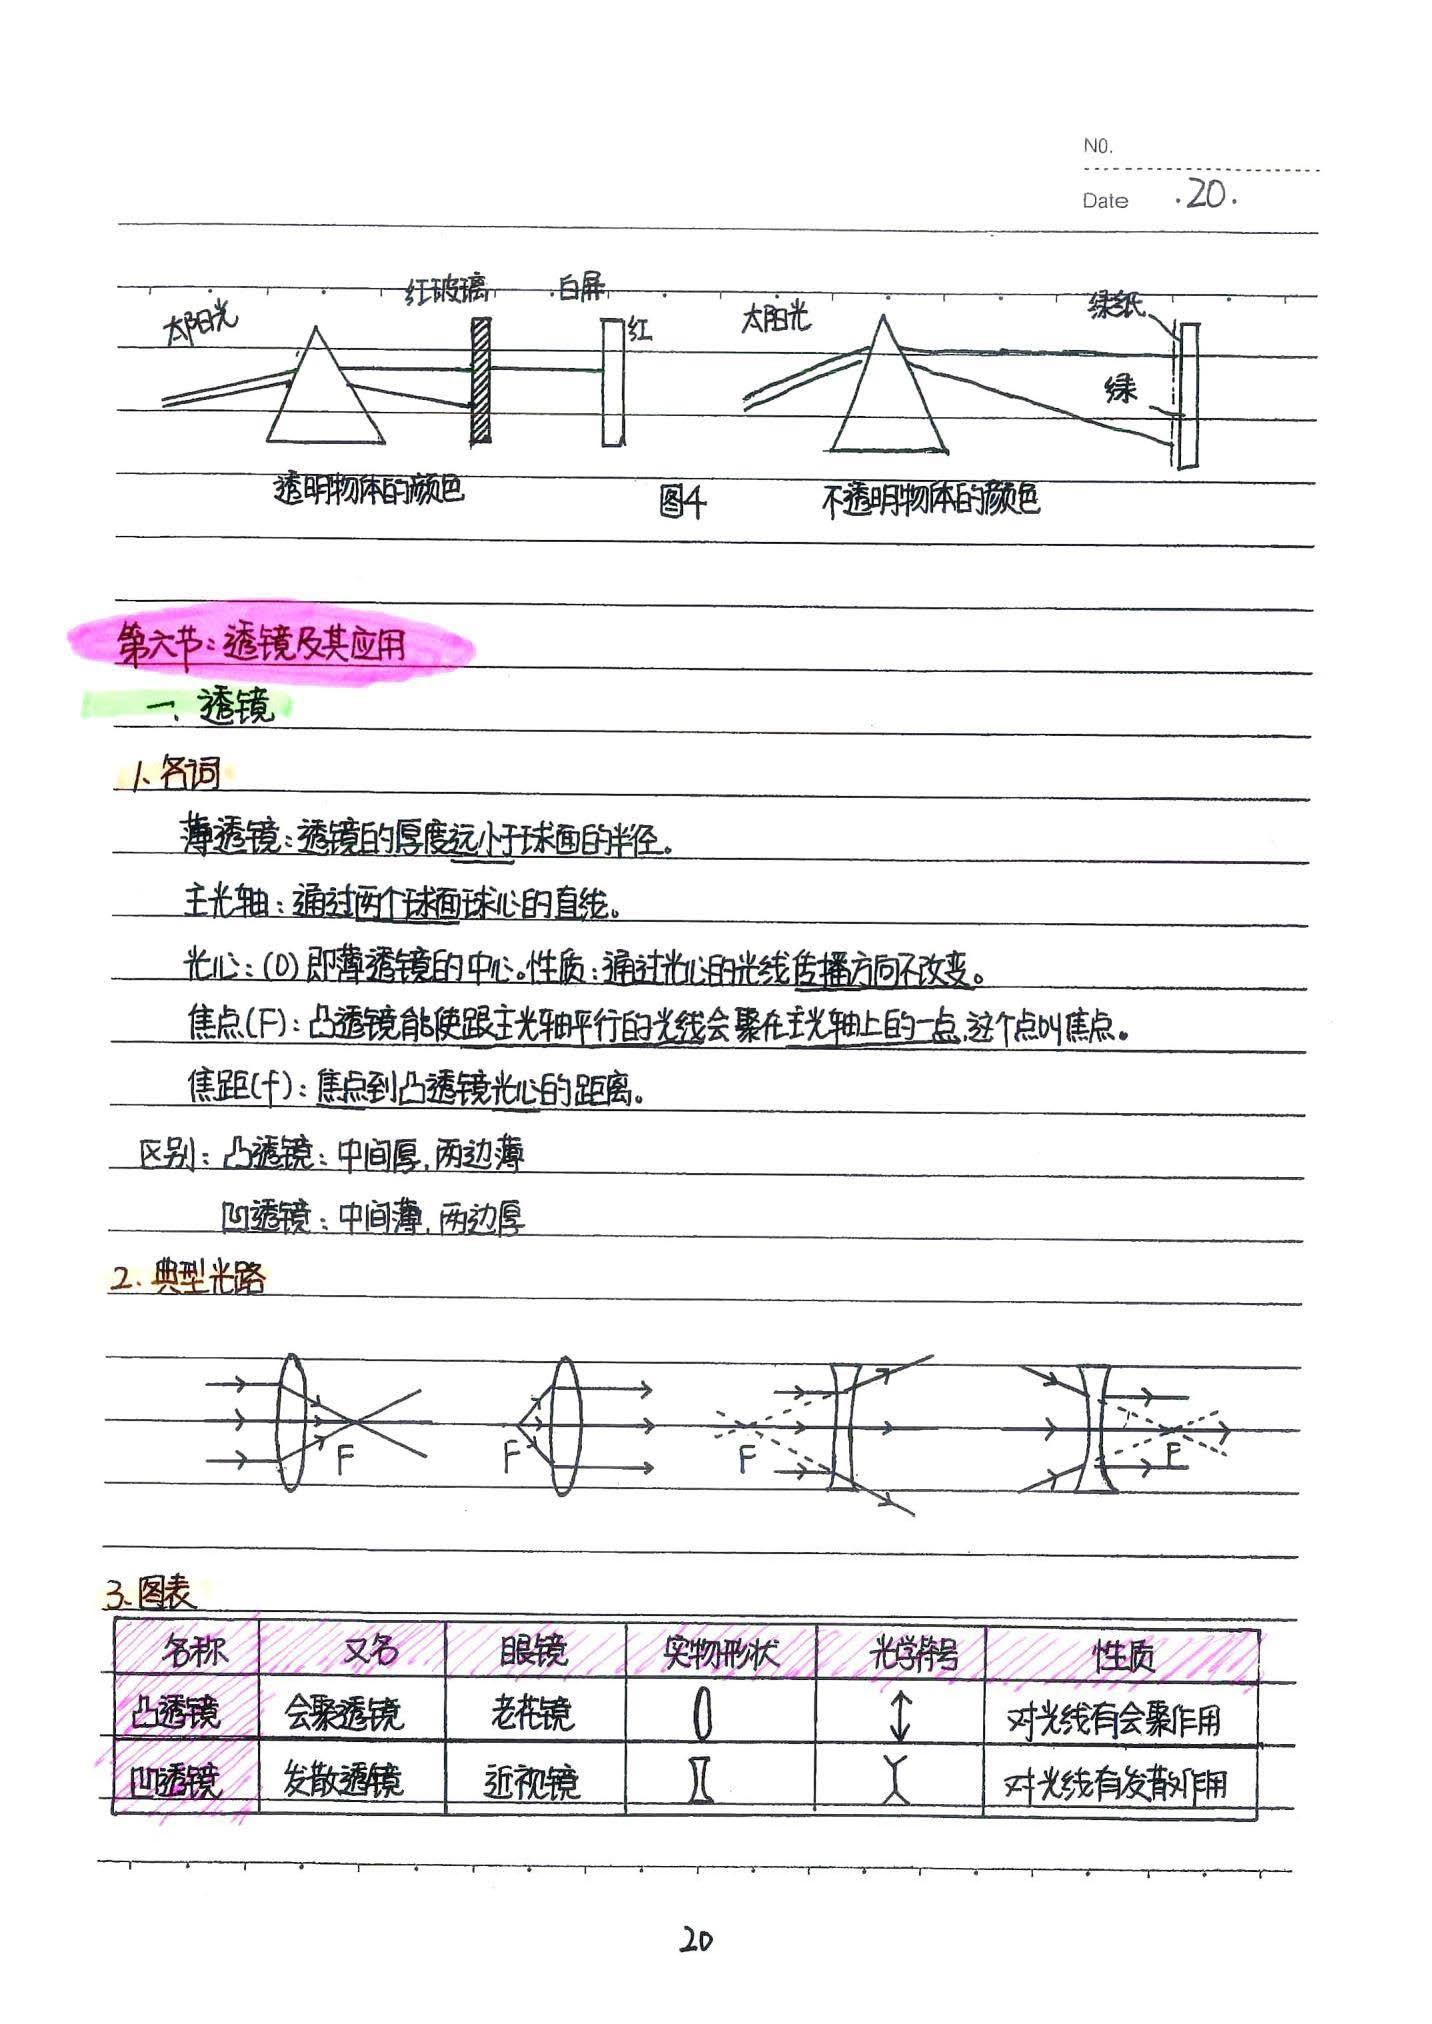 NO.
Date .20.
红玻璃 白屏
太阳光 红 太阳光 绿纸
绿
透明物体的颜色 图4 不透明物体的颜色
第六节：透镜及其应用
一、透镜
1、名词
薄透镜：透镜的厚度远小于球面的半径。
主光轴：通过两个球面球心的直线。
光心：(O)即薄透镜的中心。性质：通过光心的光线传播方向不改变。
焦点(F)：凸透镜能使跟主光轴平行的光线会聚在主光轴上的一点，这个点叫焦点。
焦距(f)：焦点到凸透镜光心的距离。
区别：凸透镜：中间厚，两边薄
凹透镜：中间薄，两边厚
2. 典型光路
F F F F
3. 图表
名称 又名 眼镜 实物形状 光学符号 性质
凸透镜 会聚透镜 老花镜 对光线有会聚作用
凹透镜 发散透镜 近视镜 对光线有发散作用
20